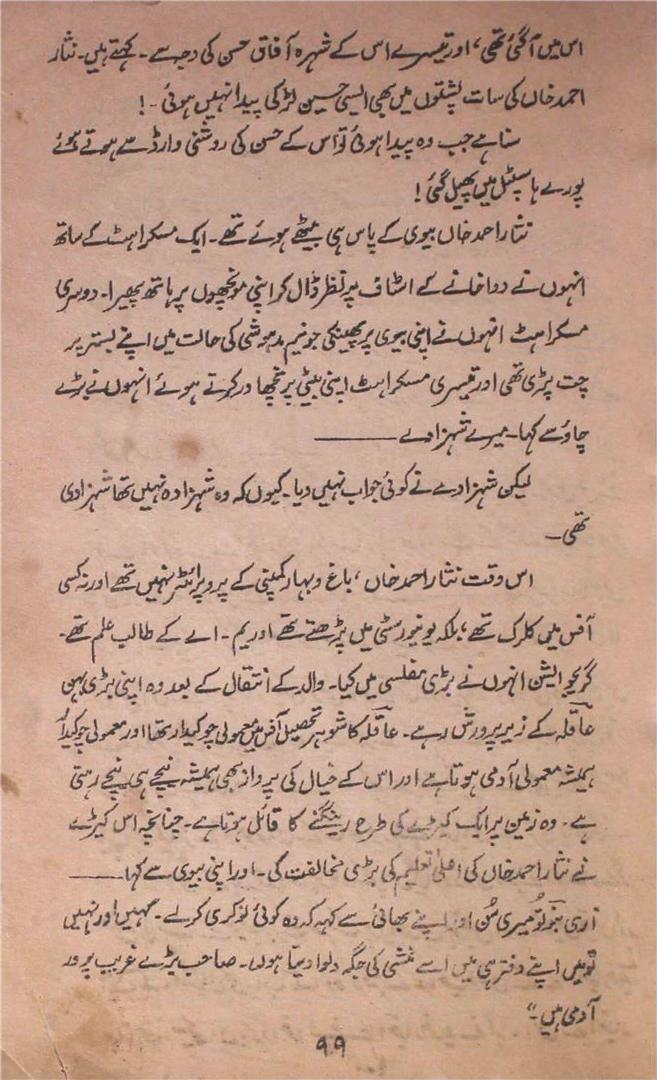 اس میں آ گئی تھی، اور تیسرے اس کے شہرہ آفاق حسن کی وجہ سے۔ کہتے ہیں۔ نثار
احمد خاں کی سات پشتوں میں بھی ایسی حسین لڑکی پیدا نہیں ہوئی۔!
سنا ہے جب وہ پیدا ہوئی تو اس کے حسن کی روشنی وارڈ سے ہوتے ہوئے
پورے ہاسپٹل میں پھیل گئی!
نثار احمد خاں بیوی کے پاس ہی بیٹھے ہوئے تھے۔ ایک مسکراہٹ کے ساتھ
انہوں نے دواخانے کے اسٹاف پر نظر ڈال کر اپنی مونچھوں پر ہاتھ پھیرا۔ دوسری
مسکراہٹ انہوں نے اپنی بیوی پر پھینکی جو نیم مدہوشی کی حالت میں اپنے بستر پر
چت پڑی تھی اور تیسری مسکراہٹ اپنی بیٹی پر نچھاور کرتے ہوئے انہوں نے بڑے
چاؤ سے کہا۔ میرے شہزادے ———
لیکن شہزادے نے کوئی جواب نہیں دیا۔ کیوں کہ وہ شہزادہ نہیں تھا شہزادی
تھی۔
اس وقت نثار احمد خاں، باغ و بہار کمپنی کے پروپرائٹر نہیں تھے اور نہ کسی
آفس میں کلرک تھے، بلکہ یونیورسٹی میں پڑھتے تھے اور یم۔ اے کے طالب علم تھے۔
گریجوایشن انہوں نے بڑی مفلسی میں کیا۔ والد کے انتقال کے بعد وہ اپنی بڑی بہن
عاقلہ کے زیر پرورش رہے۔ عاقلہ کا شوہر تحصیل آفس میں معمولی چوکیدار تھا اور معمولی چوکیدار
ہمیشہ معمولی آدمی ہوتا ہے اور اس کے خیال کی پرواز بھی ہمیشہ نیچے ہی نیچے رہتی
ہے۔ وہ زمین پر ایک کیڑے کی طرح رینگنے کا قائل ہوتا ہے۔ چنانچہ اس کیڑے
نے نثار احمد خاں کی اعلیٰ تعلیم کی بڑی مخالفت کی۔ اور اپنی بیوی سے کہا ———
اری بنّو تُو میری سُن اور اپنے بھائی سے کہہ کہ وہ کوئی نوکری کر لے۔ کہیں اور نہیں
تو میں اپنے دفتر ہی میں اسے منشی کی جگہ دلوا دیتا ہوں۔ صاحب بڑے غریب پرور
آدمی ہیں۔"
۹۹